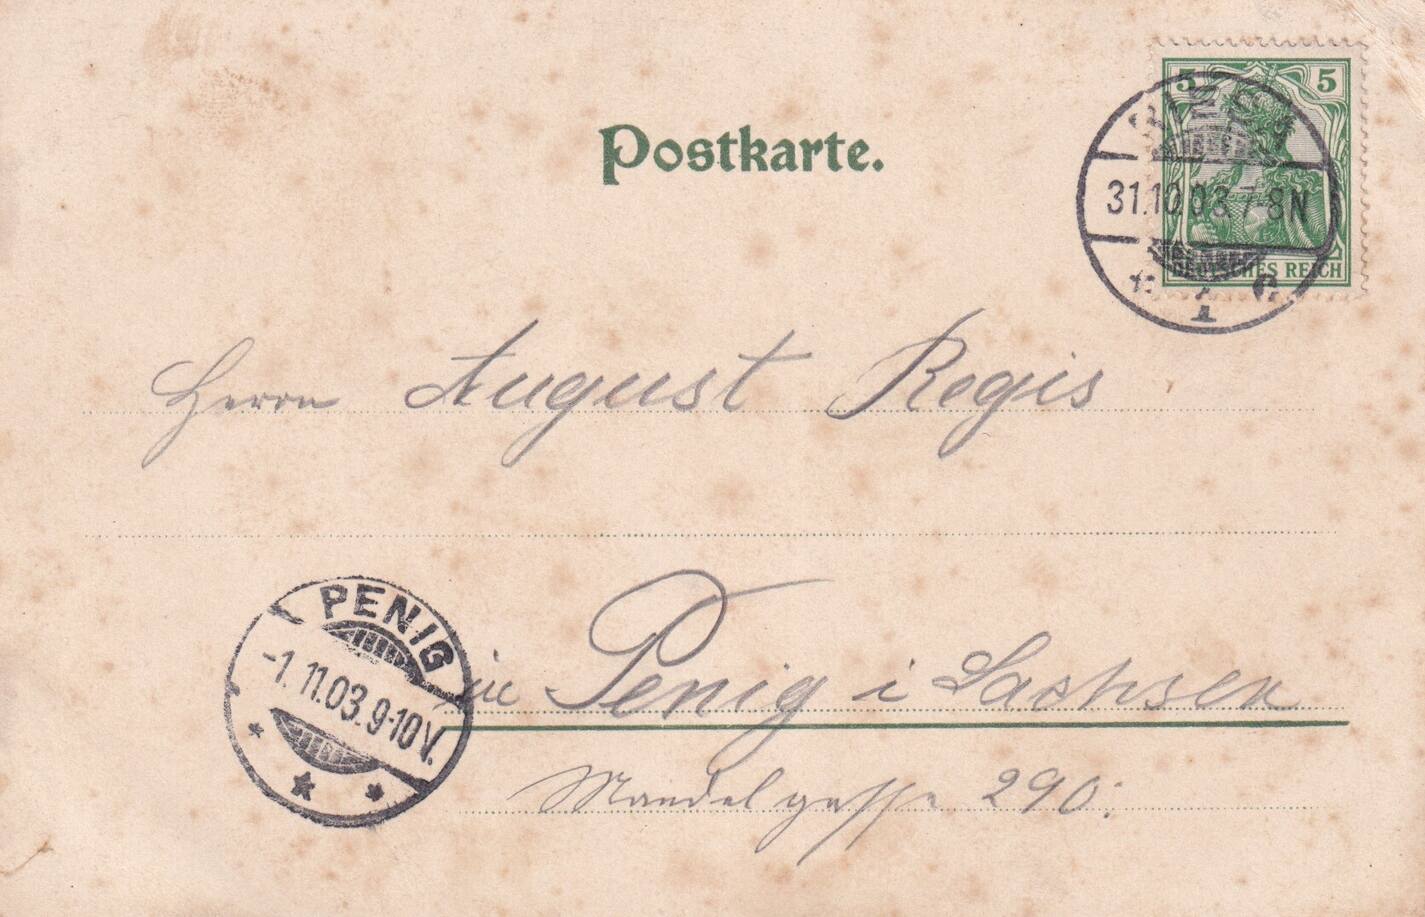 Postkarte.
5 5
RIESA
31.10.03.7-8N
DEUTSCHES REICH
Herrn August Regis
PENIG
-1.11.03.9-10V.
in Penig i Sachsen
Mandelgasse 290.